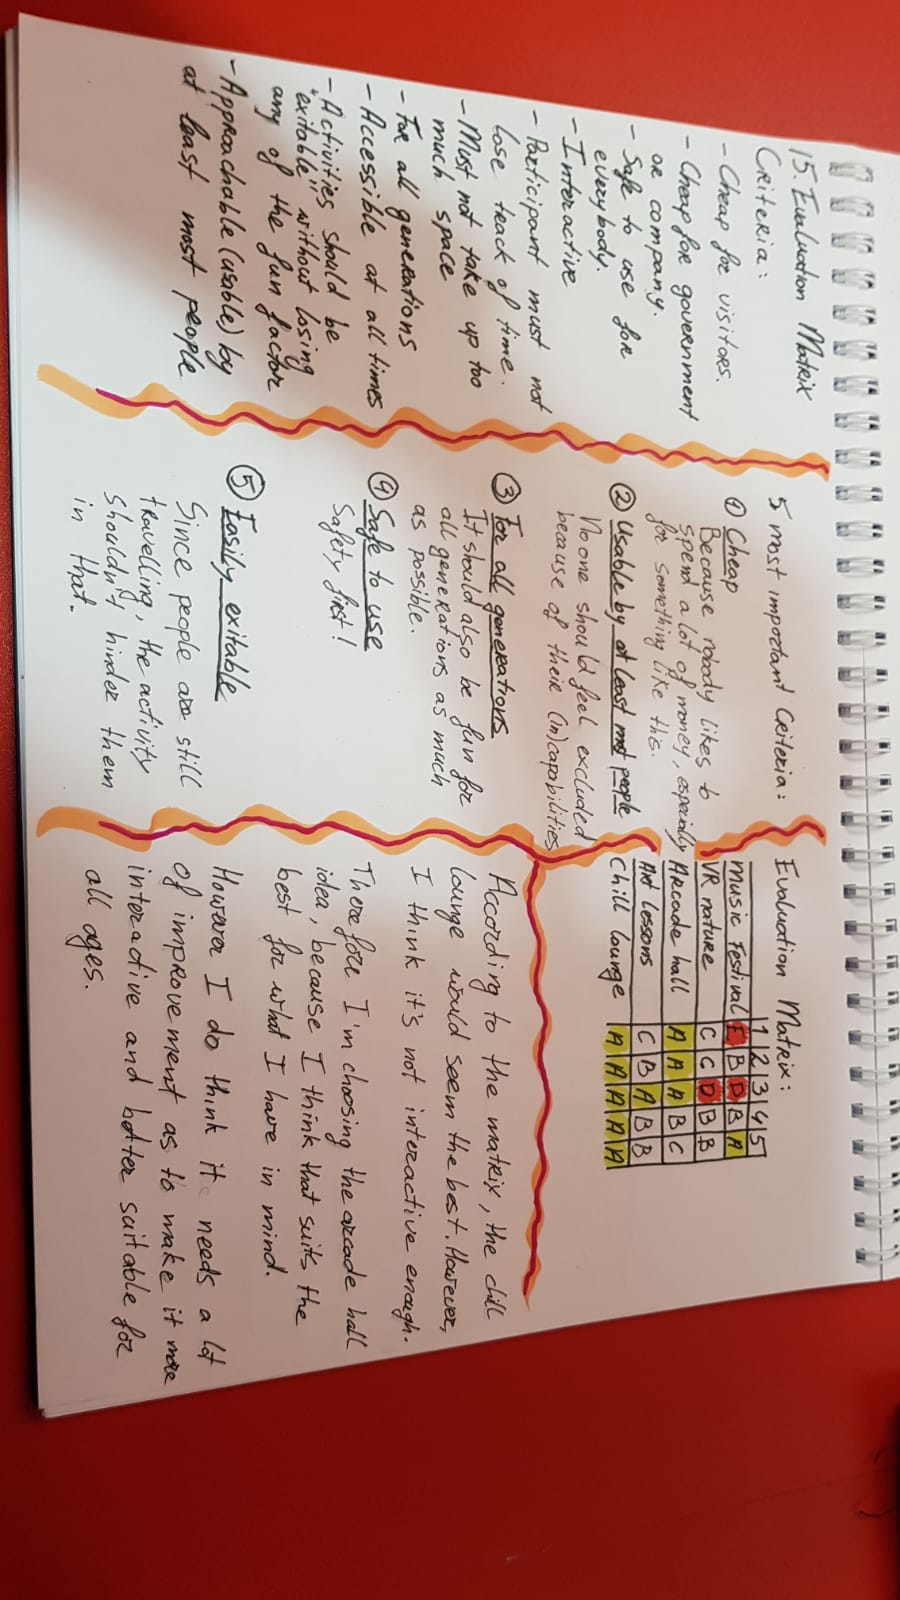 15. Evaluation Matrix
Criteria:
- Cheap for visitors.
- Cheap for government
or company.
- Safe to use for
everybody.
- Interactive
- Participant must not
lose track of time.
- Must not take up too
much space
- For all generations
- Accessible at all times
- Activities should be
"exitable" without losing
any of the fun factor
- Approachable (usable) by
at least most people
5 most important Criteria:
① Cheap
Because nobody likes to
spend a lot of money, especially
for something like this.
② Usable by at least most people
No one should feel excluded
because of their (in)capabilities
③ For all generations
It should also be fun for
all generations as much
as possible.
④ Safe to use
Safety first!
⑤ Easily exitable
Since people are still
travelling, the activity
shouldn't hinder them
in that.
Evaluation Matrix:
1 2 3 4 5
Music Festival E B D B A
VR nature C C D B B
Arcade hall A A A B C
Art lessons C B A B B
Chill lounge A A A A A
According to the matrix, the chill
lounge would seem the best. However,
I think it's not interactive enough.
Therefore I'm choosing the arcade hall
idea, because I think that suits the
best for what I have in mind.
However I do think it needs a lot
of improvement as to make it more
interactive and better suitable for
all ages.